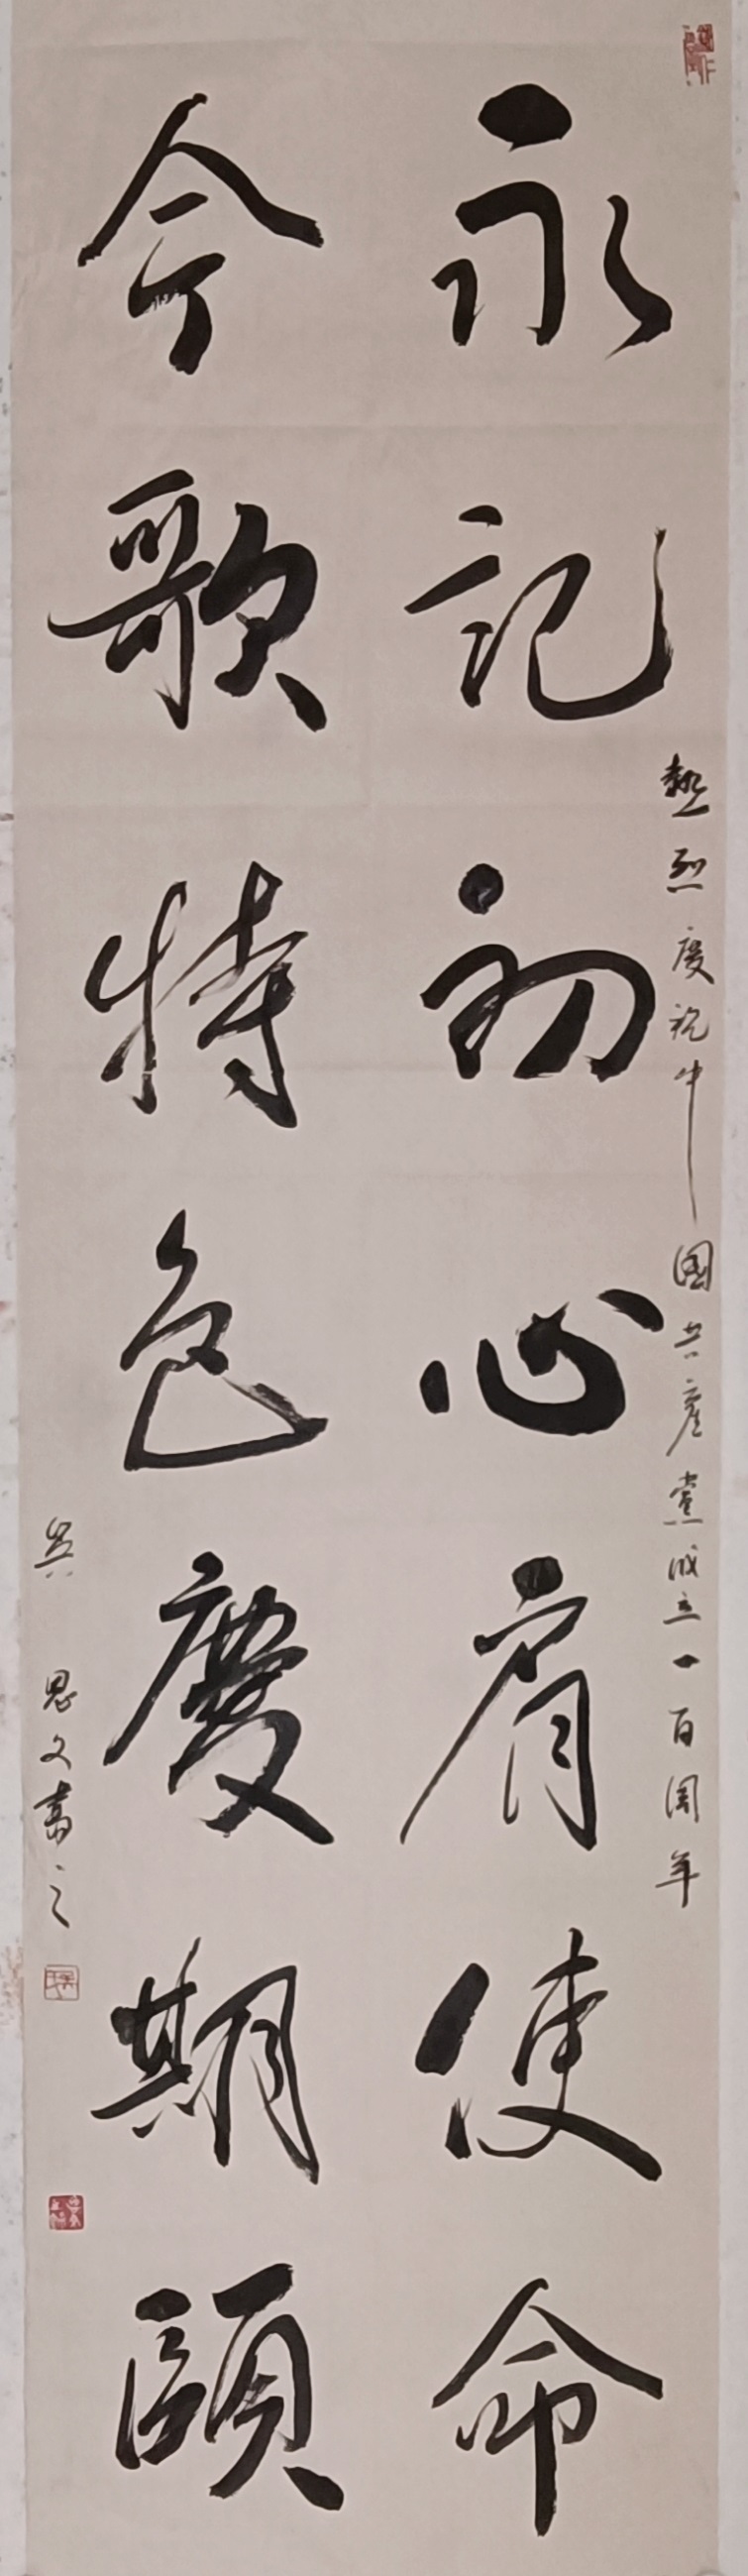 永記初心肩使命
今歌特色慶期頤
熱烈慶祝中國共產黨成立一百周年
吳思文書之